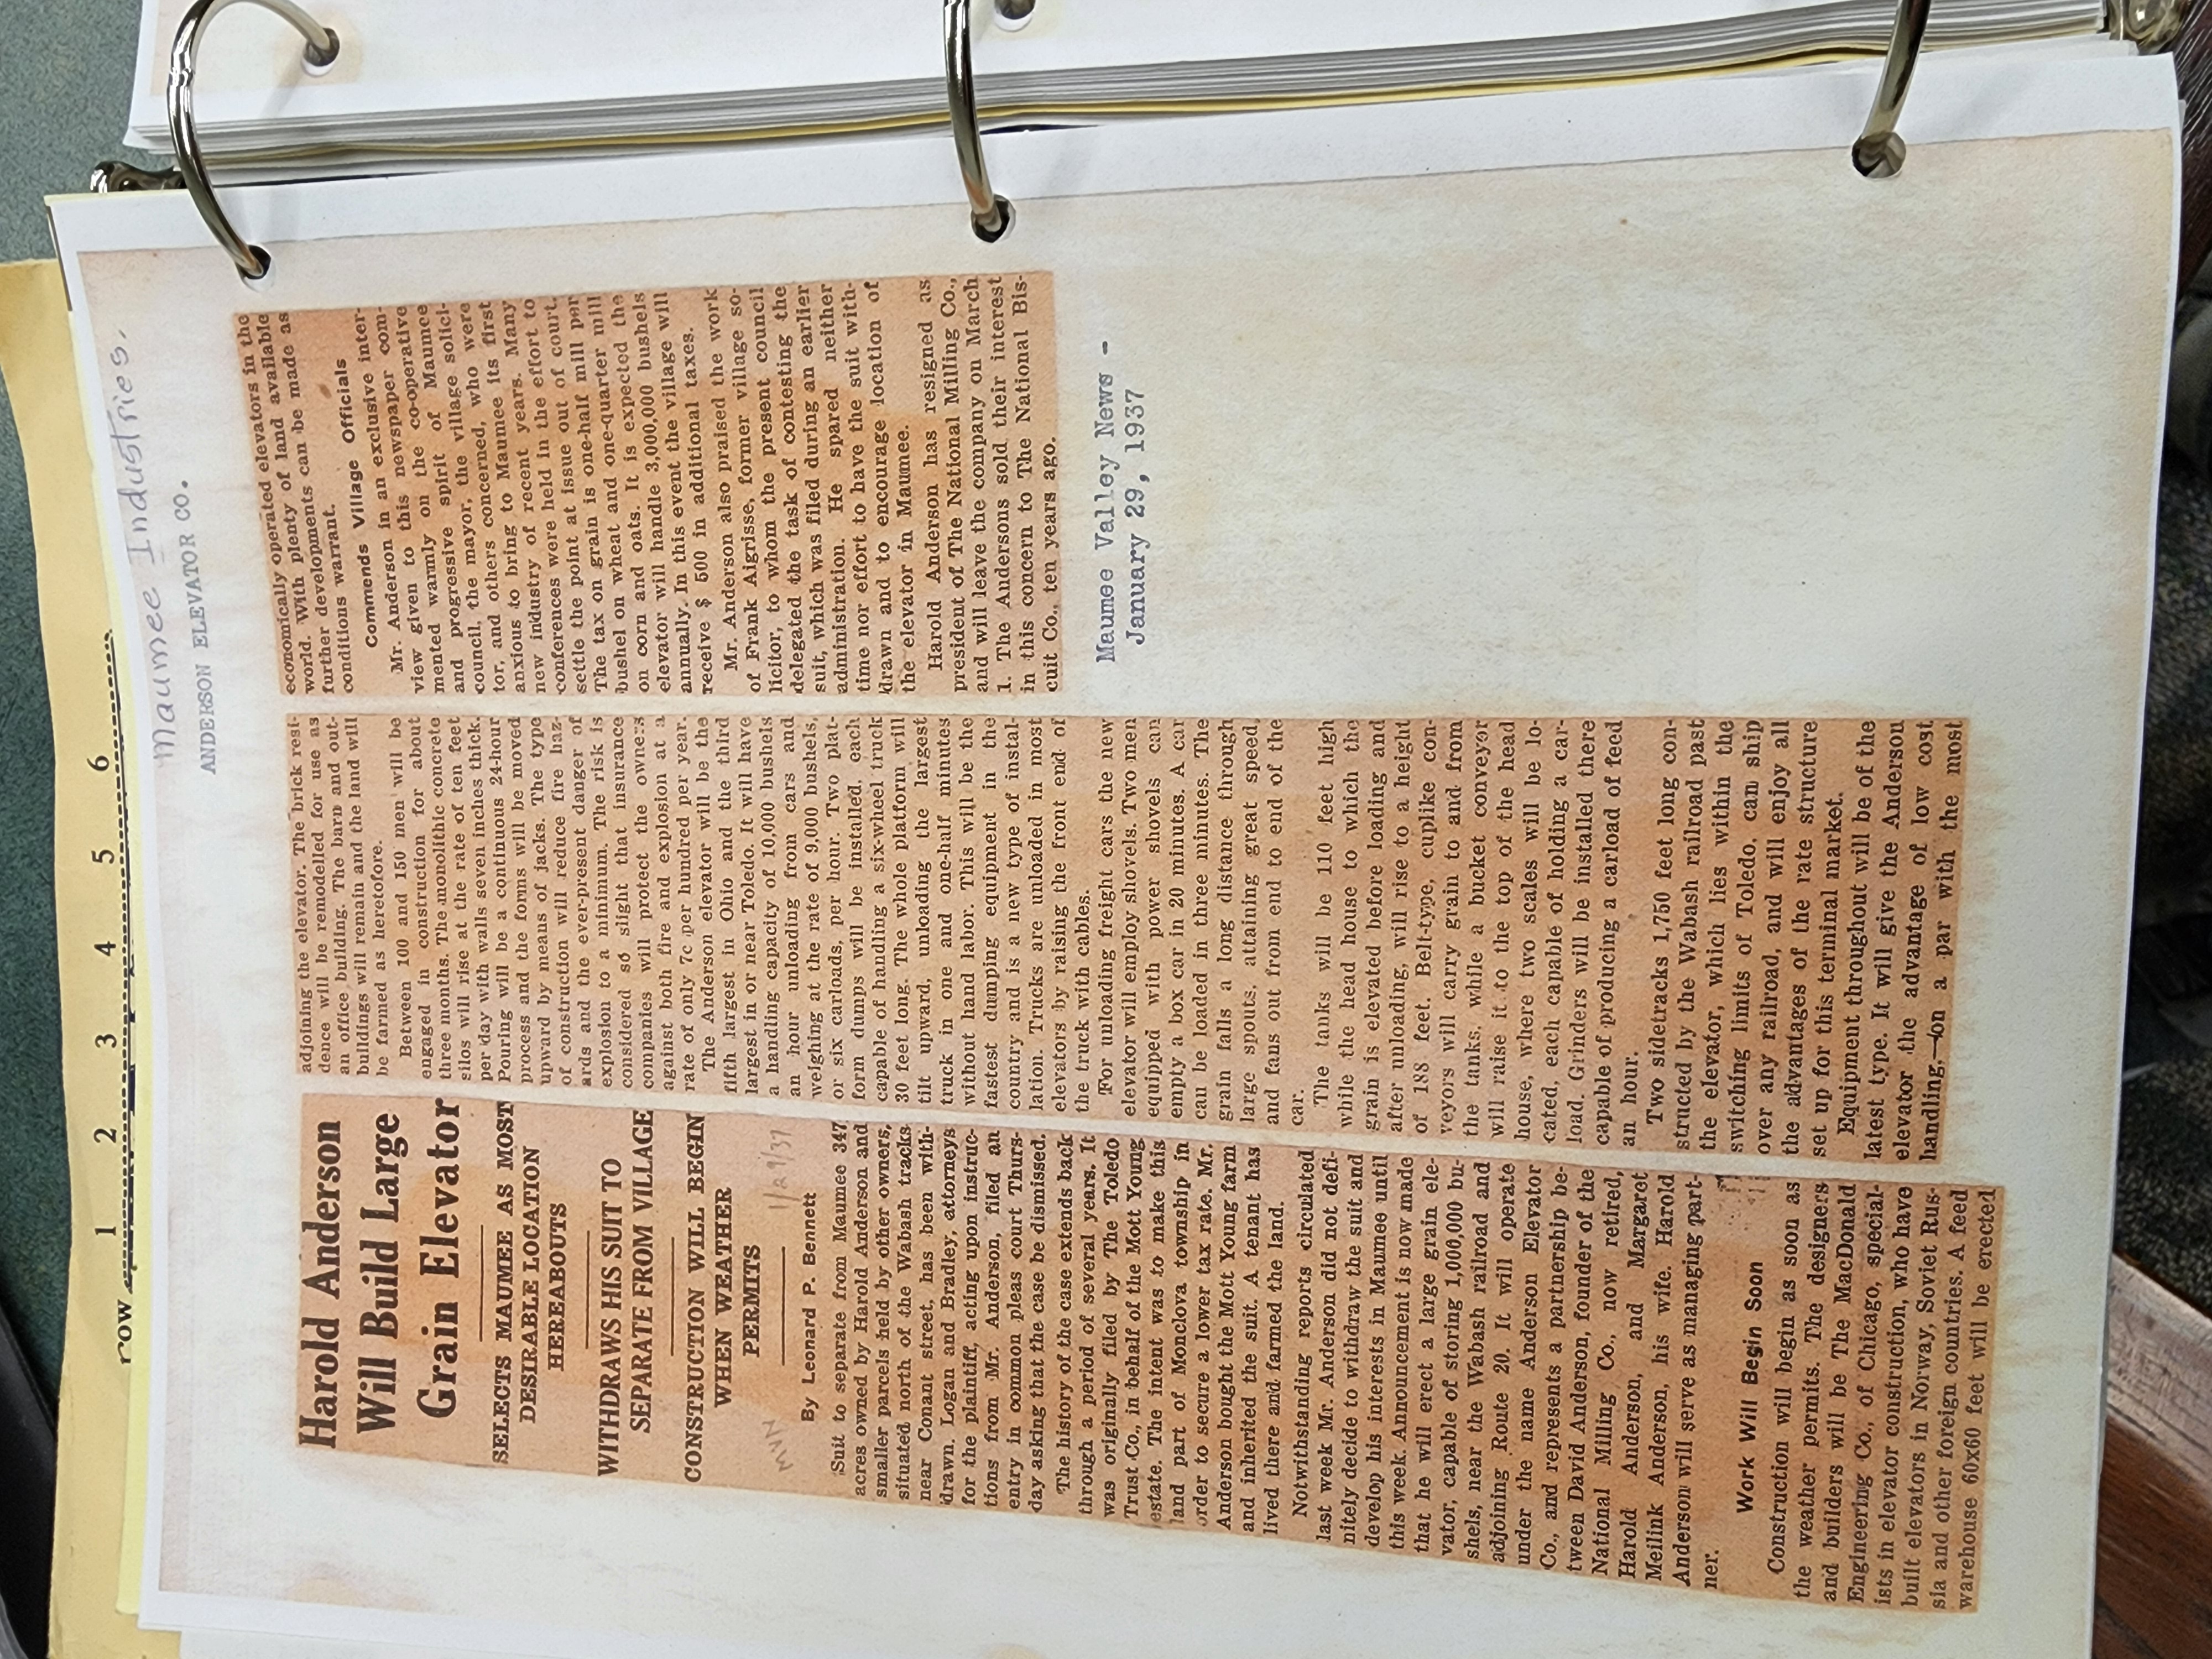 row 1 2 3 4 5 6
Maumee Industries.
ANDERSON ELEVATOR CO.
Harold Anderson
Will Build Large
Grain Elevator
SELECTS MAUMEE AS MOST
DESIRABLE LOCATION
HEREABOUTS
WITHDRAWS HIS SUIT TO
SEPARATE FROM VILLAGE
CONSTRUCTION WILL BEGIN
WHEN WEATHER
PERMITS
MVN 1/29/37
By Leonard P. Bennett
Suit to separate from Maumee 347
acres owned by Harold Anderson and
smaller parcels held by other owners,
situated north of the Wabash tracks
near Conant street, has been with-
drawn. Logan and Bradley, attorneys
for the plaintiff, acting upon instruc-
tions from Mr. Anderson, filed an
entry in common pleas court Thurs-
day asking that the case be dismissed.
The history of the case extends back
through a period of several years. It
was originally filed by The Toledo
Trust Co., in behalf of the Mott Young
estate. The intent was to make this
land part of Monclova township in
order to secure a lower tax rate. Mr.
Anderson bought the Mott Young farm
and inherited the suit. A tenant has
lived there and farmed the land.
Notwithstanding reports circulated
last week Mr. Anderson did not defi-
nitely decide to withdraw the suit and
develop his interests in Maumee until
this week. Announcement is now made
that he will erect a large grain ele-
vator, capable of storing 1,000,000 bu-
shels, near the Wabash railroad and
adjoining Route 20. It will operate
under the name Anderson Elevator
Co., and represents a partnership be-
tween David Anderson, founder of the
National Milling Co., now retired,
Harold Anderson, and Margaret
Meilink Anderson, his wife. Harold
Anderson will serve as managing part-
ner.
Work Will Begin Soon
Construction will begin as soon as
the weather permits. The designers
and builders will be The MacDonald
Engineering Co., of Chicago, special-
ists in elevator construction, who have
built elevators in Norway, Soviet Rus-
sia and other foreign countries. A feed
warehouse 60x60 feet will be erected
adjoining the elevator. The brick resi-
dence will be remodelled for use as
an office building. The barn and out-
buildings will remain and the land will
be farmed as heretofore.
Between 100 and 150 men will be
engaged in construction for about
three months. The monolithic concrete
silos will rise at the rate of ten feet
per day with walls seven inches thick.
Pouring will be a continuous 24-hour
process and the forms will be moved
upward by means of jacks. The type
of construction will reduce fire haz-
ards and the ever-present danger of
explosion to a minimum. The risk is
considered so slight that insurance
companies will protect the owners
against both fire and explosion at a
rate of only 7c per hundred per year.
The Anderson elevator will be the
fifth largest in Ohio and the third
largest in or near Toledo. It will have
a handling capacity of 10,000 bushels
an hour unloading from cars and
weighing at the rate of 9,000 bushels,
or six carloads, per hour. Two plat-
form dumps will be installed, each
capable of handling a six-wheel truck
30 feet long. The whole platform will
tilt upward, unloading the largest
truck in one and one-half minutes
without hand labor. This will be the
fastest dumping equipment in the
country and is a new type of instal-
lation. Trucks are unloaded in most
elevators by raising the front end of
the truck with cables.
For unloading freight cars the new
elevator will employ shovels. Two men
equipped with power shovels can
empty a box car in 20 minutes. A car
can be loaded in three minutes. The
grain falls a long distance through
large spouts, attaining great speed,
and fans out from end to end of the
car.
The tanks will be 110 feet high
while the head house to which the
grain is elevated before loading and
after unloading, will rise to a height
of 188 feet. Belt-type, cuplike con-
veyors will carry grain to and from
the tanks, while a bucket conveyor
will raise it to the top of the head
house, where two scales will be lo-
cated, each capable of holding a car-
load. Grinders will be installed there
capable of producing a carload of feed
an hour.
Two sidetracks 1,750 feet long con-
structed by the Wabash railroad past
the elevator, which lies within the
switching limits of Toledo, can ship
over any railroad, and will enjoy all
the advantages of the rate structure
set up for this terminal market.
Equipment throughout will be of the
latest type. It will give the Anderson
elevator the advantage of low cost
handling,—on a par with the most
economically operated elevators in the
world. With plenty of land available
further developments can be made as
conditions warrant.
Commends Village Officials
Mr. Anderson in an exclusive inter-
view given to this newspaper com-
mented warmly on the co-operative
and progressive spirit of Maumee
council, the mayor, the village solici-
tor, and others concerned, who were
anxious to bring to Maumee its first
new industry of recent years. Many
conferences were held in the effort to
settle the point at issue out of court.
The tax on grain is one-half mill per
bushel on wheat and one-quarter mill
on corn and oats. It is expected the
elevator will handle 3,000,000 bushels
annually. In this event the village will
receive $ 500 in additional taxes.
Mr. Anderson also praised the work
of Frank Aigrisse, former village so-
licitor, to whom the present council
delegated the task of contesting the
suit, which was filed during an earlier
administration. He spared neither
time nor effort to have the suit with-
drawn and to encourage location of
the elevator in Maumee.
Harold Anderson has resigned as
president of The National Milling Co.,
and will leave the company on March
1. The Andersons sold their interest
in this concern to The National Bis-
cuit Co., ten years ago.
Maumee Valley News -
January 29, 1937